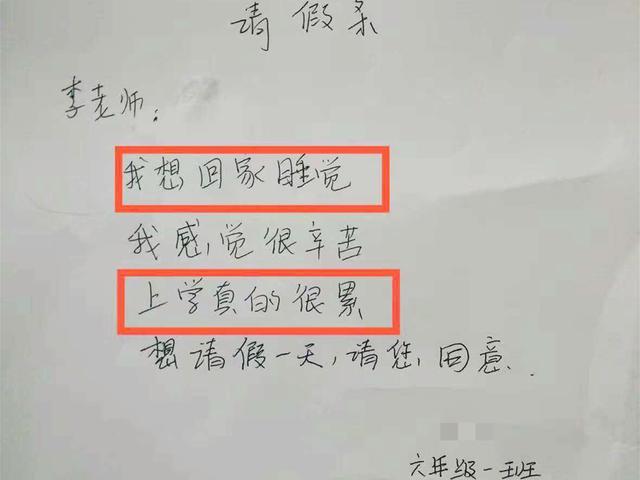 请假条
李老师：
我想回家睡觉
我感觉很辛苦
上学真的很累
想请假一天，请您同意.
六年级一班